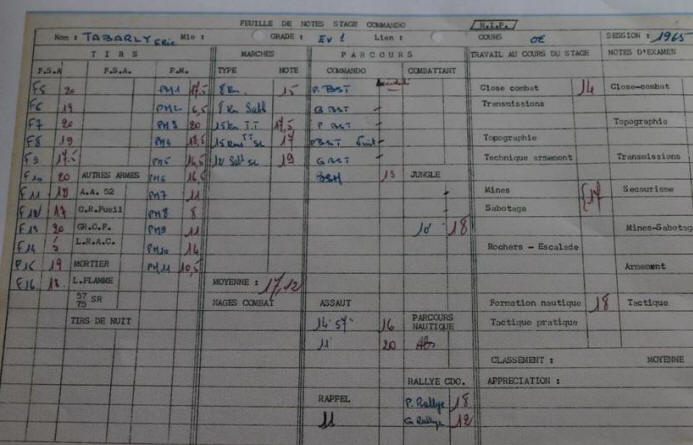 FEUILLE DE NOTES STAGE COMMANDO
Nom : TABARLY Eric Mle : GRADE : EV 1 Lien : COURS OE SESSION : 1965
TIRS MARCHES PARCOURS TRAVAIL AU COURS DU STAGE NOTES D'EXAMEN
F.S.A F.S.A. P.M. TYPE NOTE COMMANDO COMBATTANT
F5 20 PM1 17,5 8 Km 15 P. BST Close combat 14 Close-combat
F6 19 PM2 6,5 8 Km G BST Transmissions
F7 20 PM3 20 15 Km TT 17,5 P BST Topographie
F8 19 PM4 17 Topographie
F9 17,5 PM5 16,5 19 G BST Technique armement Transmissions
20 AUTRES ARMES PM6 16,5 15 JUNGLE
F11 18 A.A. 52 PM7 11 Mines Secourisme
17 G.R.Fusil PM8 8 Sabotage 17
20 GR.O.F. PM9 11 10' 18 Mines-Sabotag
F14 5 L.R.A.C. PM10 16 Rochers - Escalade
F15 19 MORTIER PM11 10,5 Armement
F16 18 L.FLAMME MOYENNE : 17,12
57 75 SR NAGES COMBAT ASSAUT Formation nautique 18 Tactique
TIRS DE NUIT 14' 57" 16 PARCOURS NAUTIQUE Tactique pratique
11' 20 Abs
CLASSEMENT : MOYENNE
RALLYE CDO. APPRECIATION :
RAPPEL P. Rallye 18
11 G Rallye 12